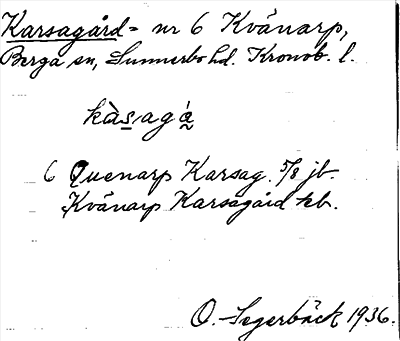 Karsagård = nr 6 Kvänarp,
Berga sn, Sunnerbo hd. Kronob. l.
kàsagá̰
6 Quenarp Karsag. 5/8 jb.
Kvänarp Karsagård kb.
O. Segerbäck 1936.